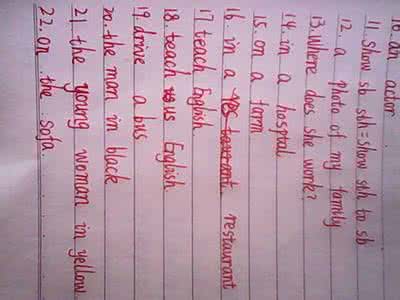 10. an actor
11. Show sb sth = show sth to sb
12. a photo of my family
13. Where does she work?
14. in a hosptal
15. on a farm
16. in a restaurant
17. teach English
18. teach us English
19. drive a bus
20. the man in black
21 the young woman in yellow
22. on the sofa.